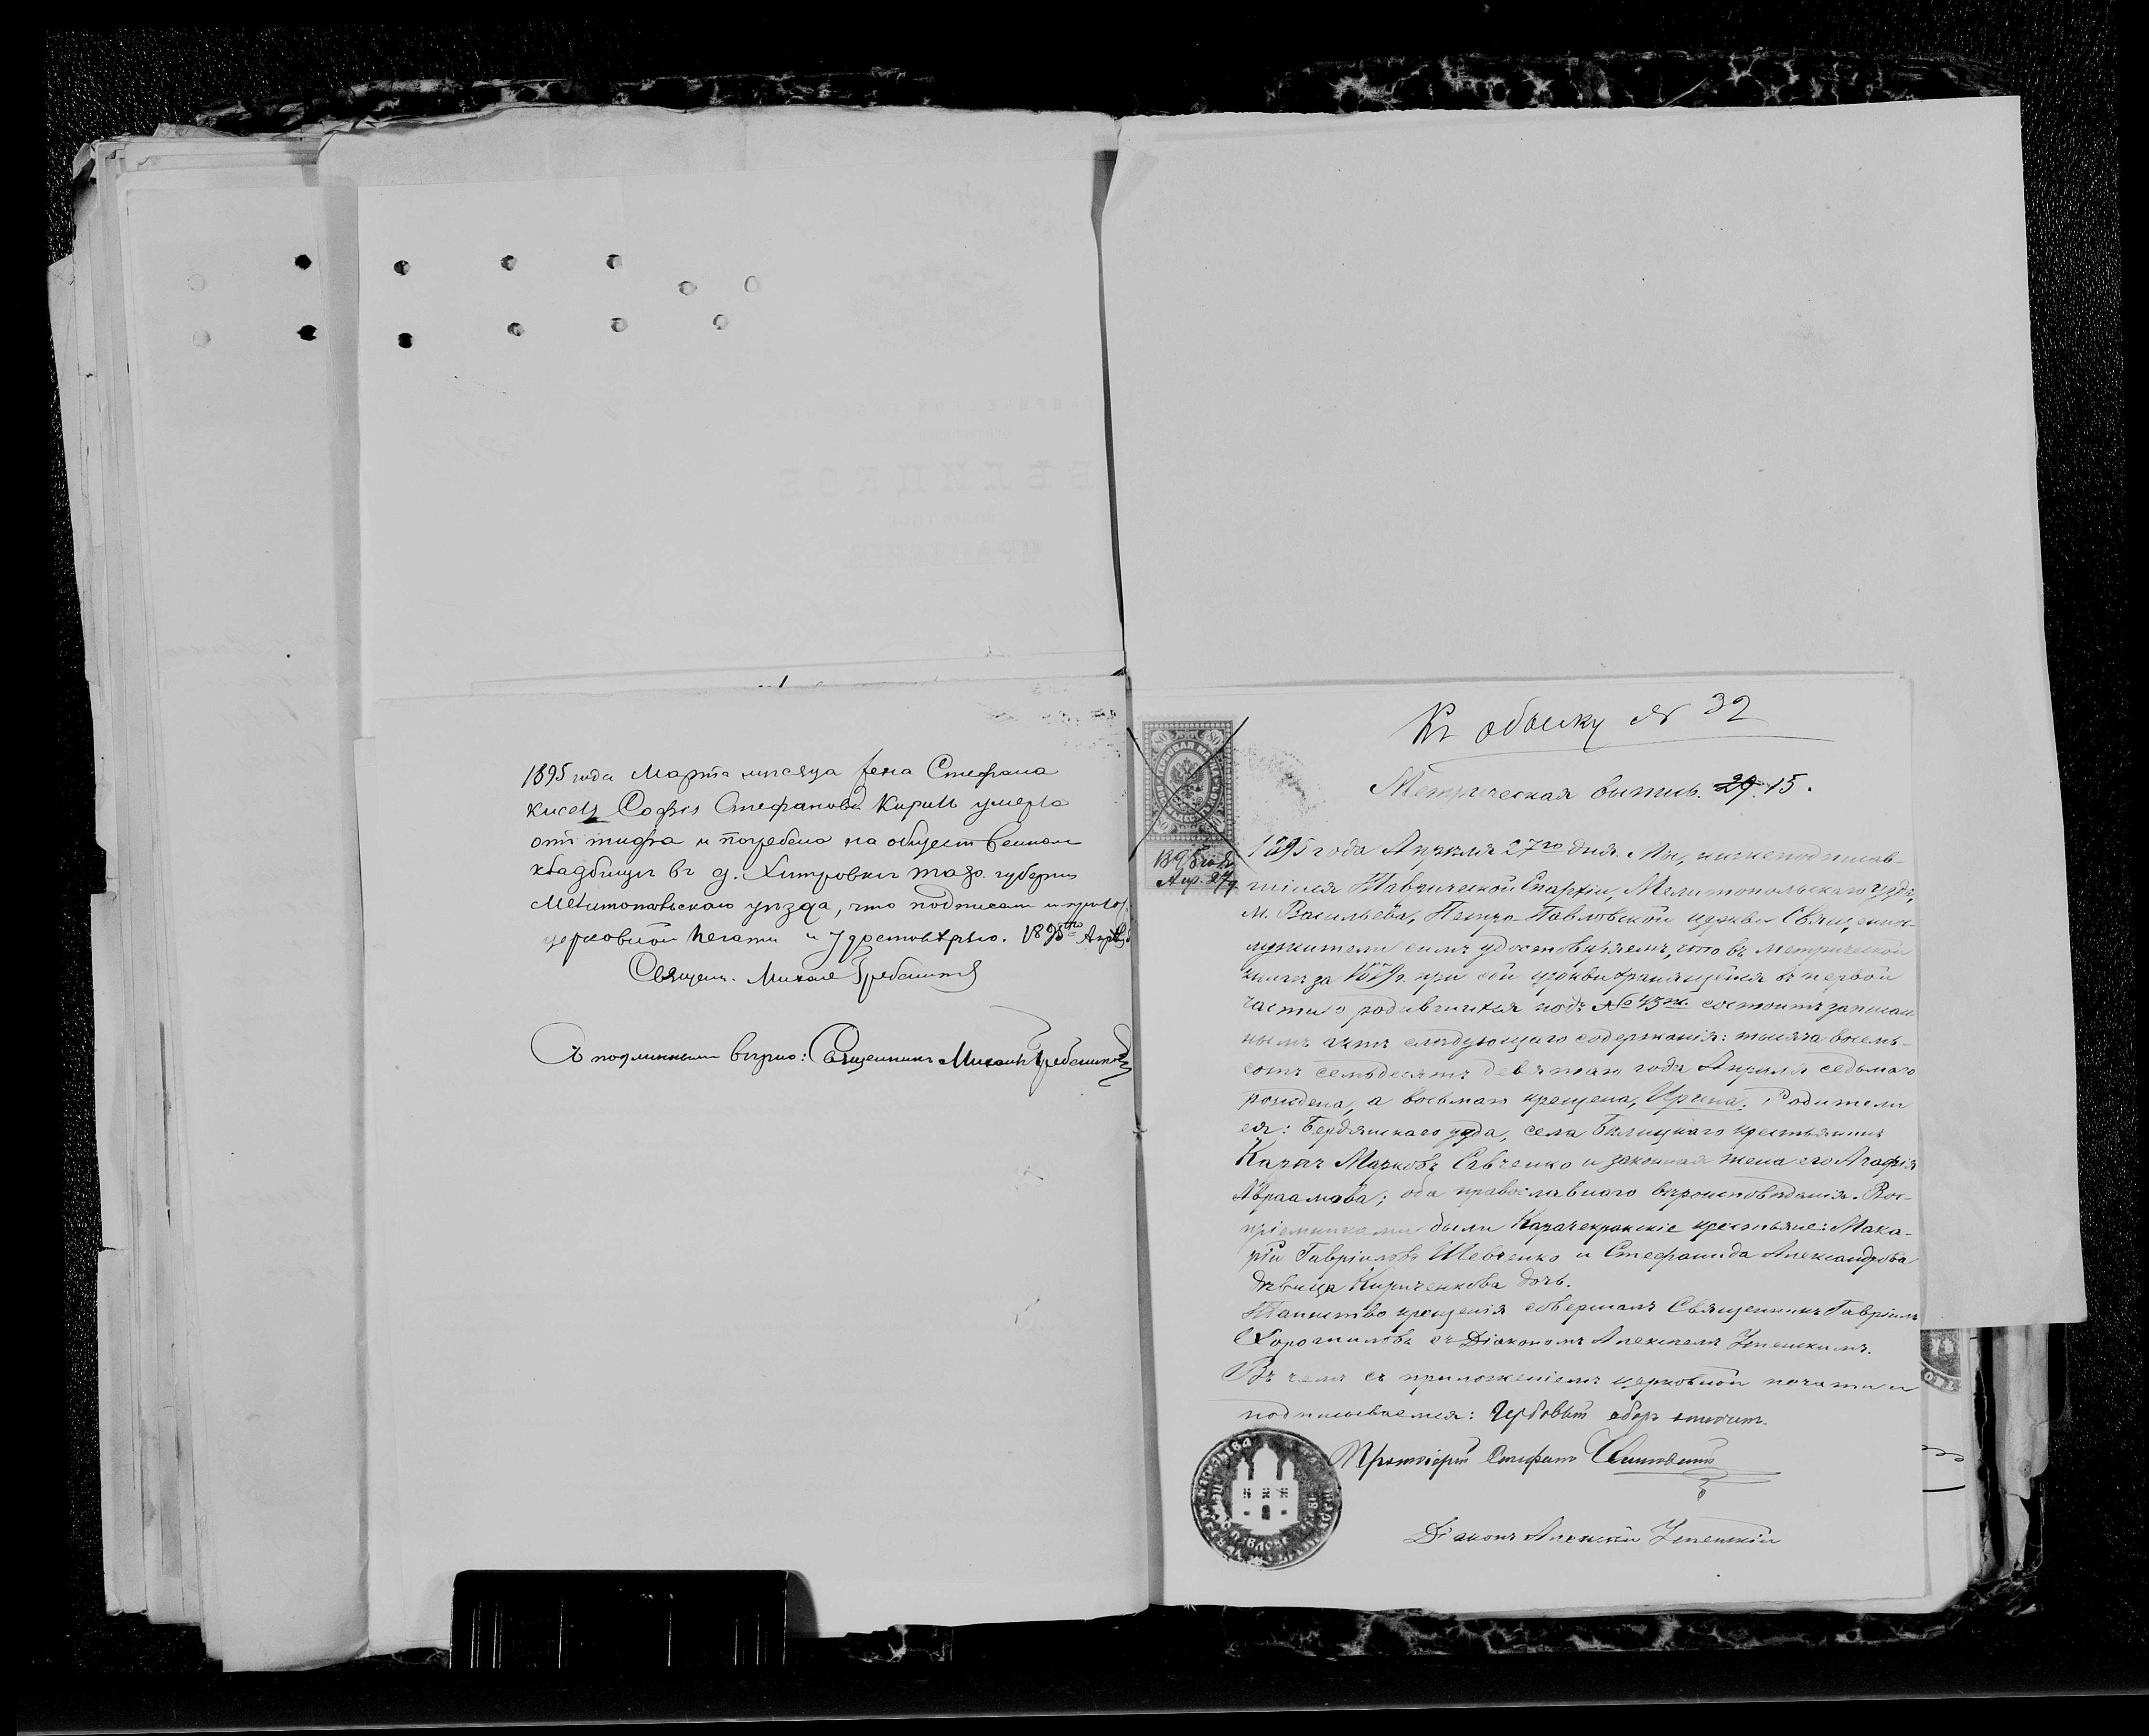 1895 года Марта месяца жена Стефана
Кисец София Стефанова Кирил умерла
отъ тифа и погребена на общественном
кладбище въ д. Хитровки тавр. губерніи
Мелитопольскаго уѣзда, что подписом и прилож.
церковной печати и удостовѣряю. 1895го Апрѣля
Священ. Михаил Гребенит
Съ подлиннымъ вѣрно: Священникъ Михаилъ
Къ обыску № 32
Метрическая выпись. 29. 15.
1895 года
Апр. 27 д
1895 года Апрѣля 27го дня. Мы, нижеподписав-
шіеся Таврической Епархіи, Мелитопольскаго уѣзда,
м. Васильевки, Петро-Павловской церкви Священно-
служители симъ удостовѣряемъ, что въ метрической
книгѣ за 1879 г. при сей церкви хранящейся въ первой
части о родившихся подъ № 43 ж. состоитъ записан
нымъ актъ слѣдующаго содержанія: тысяча восемь-
сотъ семьдесятъ девятаго года Апрѣля седьмаго
рождена, а восьмаго крещена, Ирина. Родители
ея: Бердянскаго уѣзда, села Бѣлицкаго крестьянинъ
Карпъ Марковъ Савченко и законная жена его Агафія
Авраамова; оба православнаго вѣроисповѣданія. Вос-
пріемниками были Карачекракскіе крестьяне: Мака-
рій Гавріиловъ Шевченко и Стефанида Александрова
дѣвица Кириченкова дочь.
Таинство крещенія совершалъ Священникъ Гавріилъ
Хорошиловъ съ Діакономъ Алексѣемъ
Въ чемъ съ приложеніемъ церковной печати и
подписываемся: Гербовый сборъ
Протоіерей Стефанъ
Діаконъ Алексій